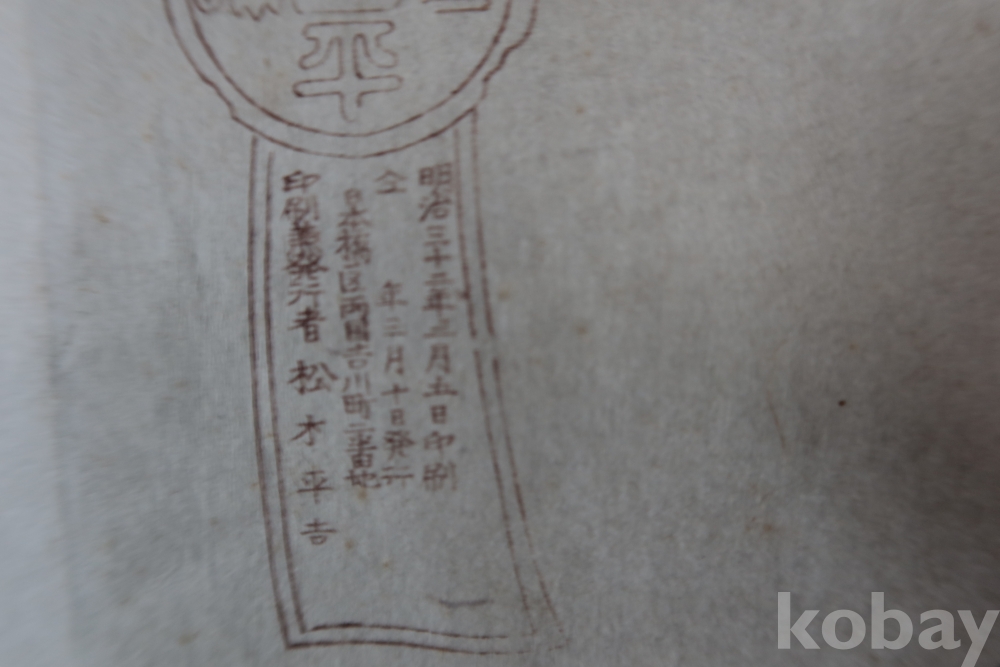 平
明治三十二年三月五日印刷
仝 年三月十日発行
日本橋区両国吉川町二番地
印刷兼発行者 松木平吉
kobay